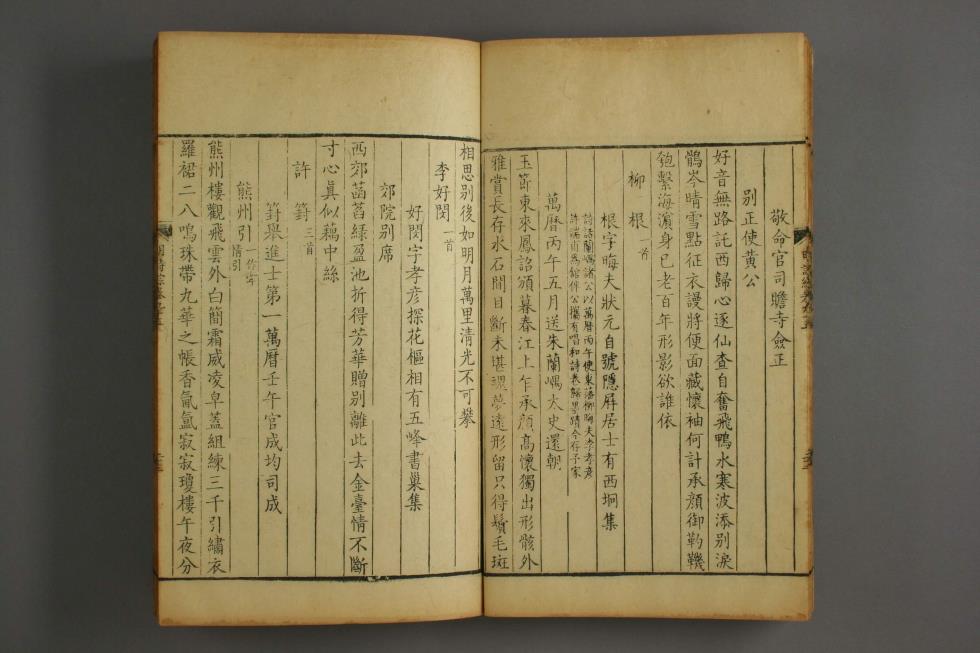 敬命官司瞻寺僉正
別正使黃公
好音無路託西歸心逐仙查自奮飛鴨水寒波添別淚
鶻岑晴雪點征衣謾將便面藏懷袖何計承顏御勒鞿
匏繫海濵身已老百年形影欲誰依
柳根一首
根字晦夫狀元自號隱屏居士有西坰集
詩話蘭嵎諸公以萬曆丙午使東藩柳晦夫李孝彦
許瑞甫爲館伴公攜有唱和詩卷歸墨蹟今存予家
萬曆丙午五月送朱蘭嵎太史還朝
玉節東來鳳詔頒暮春江上乍承顏高懷獨出形骸外
雅賞長存水石間目斷未堪夢遠形留只得鬢毛斑
相思別後如明月萬里清光不可攀
李好閔一首
好閔字孝彦探花樞相有五峰書巢集
郊院別席
西郊菡萏緑盈池折得芳華贈別離此去金臺情不斷
寸心眞似藕中絲
許篈三首
篈舉進士第一萬曆壬午官成均司成
熊州引一作
情引
熊州樓觀飛雲外白簡霜威凌皁蓋組練三千引繡衣
羅裙二八鳴珠帶九華之帳香氤氳寂寂瓊樓午夜分